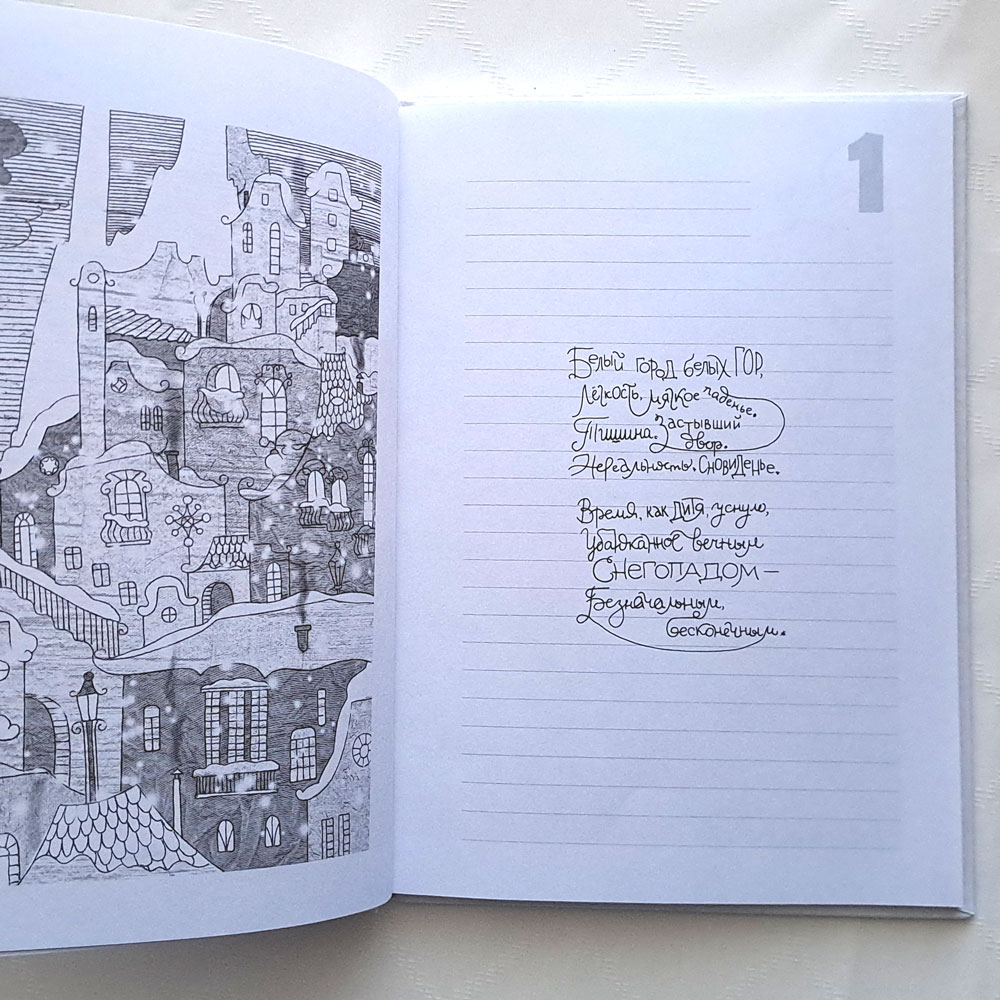 1
Белый город белых ГОР,
Лёгкость, мягкое паденье.
Тишина. Застывший двор.
Нереальность. Сновиденье.
Время, как дитя, уснуло,
Убаюканное вечным
Снегопадом –
Безначальным,
бесконечным.